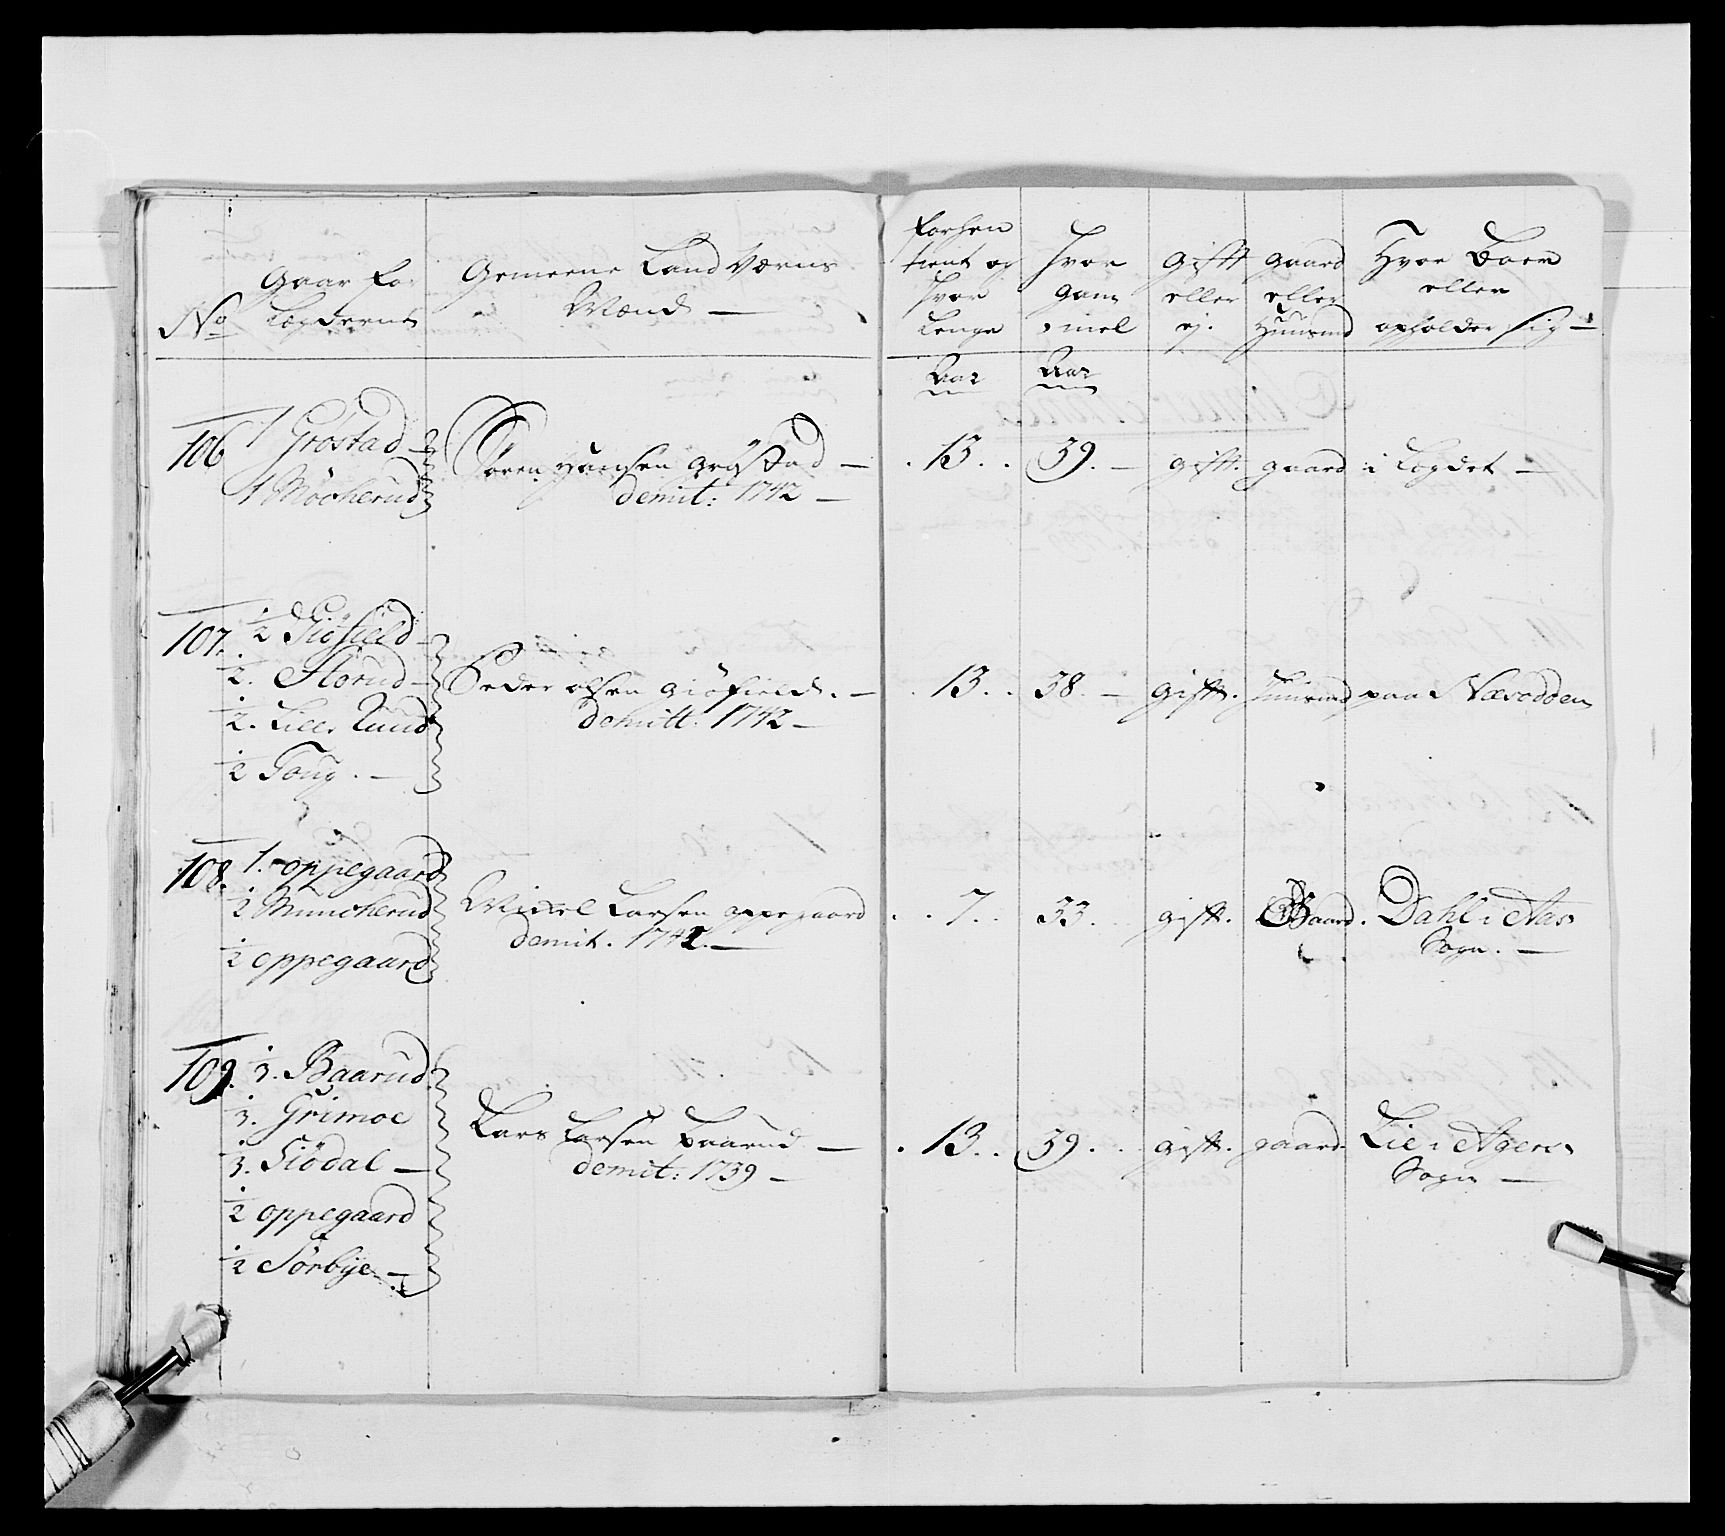 No
Gaar for
Legderne
Gemeene Land Værns
Mænd —
forhen
tient og
hvor
Lenge
hvor
gam
mel
gifft
eller
ej.
gaard
eller
Huusmd
Hvor Boer
eller
opholder sig —
Aar
Aar
106
1 Grøstad —
1 Møcherud
Søren Hansen Grøstad —
demit: 1742 —
13. . 39. — gifft. gaard i Legdet —
107.
1/2 Giøfield —
1/2. Storud —
1/2. Lille Ruud
1/2 Toug. —
Peder Olsen Giøfield. —
demitt: 1742 —
13. . 38. — gifft. Huusmd paa Næsodden
108.
1. oppegaard
1/2 Muncherud
1/2 oppegaard
Mickel Larsen oppegaard
demit. 1742. —
7. . 33. gift. Gaard. Dahl i Aas
Sogn. —
109.
1/3. Baarud
1/3. Grimoe
1/3. Siødal —
1/2 oppegaard
1/2 Sørbye —
Lars Larsen Baarud —
demit: 1739 —
13. . 39. . gift. gaard. Lie i Agers
Sogn —